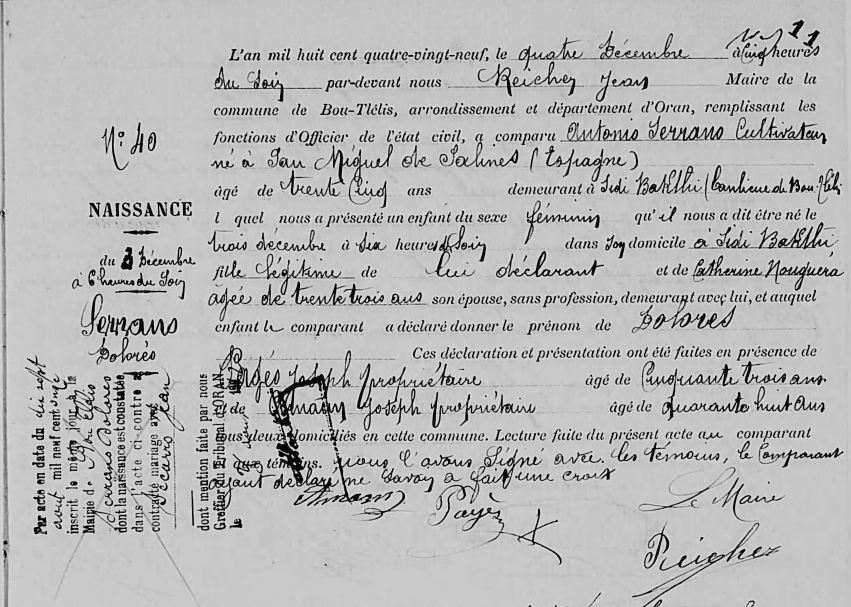 L'an mil huit cent quatre-vingt-neuf, le quatre Décembre à Cinq heures
du Soir par-devant nous Reichez Jean Maire de la
commune de Bou-Tlélis, arrondissement et département d'Oran, remplissant les
fonctions d'Officier de l'état civil, a comparu Antonio Serrano Cultivateur
né à San Miguel de Salines (Espagne)
âgé de trente Cinq ans demeurant à Sidi Bakhti (banlieue de Bou-Tlélis
l quel nous a présenté un enfant du sexe féminin qu'il nous a dit être né le
trois décembre à Six heures du Soir dans Son domicile à Sidi Bakhti
fille légitime de lui déclarant et de Catherine Nouguera
agée de trente trois ans son épouse, sans profession, demeurant avec lui, et auquel
enfant le comparant a déclaré donner le prénom de Dolorès
Ces déclaration et présentation ont été faites en présence de
Joseph propriétaire âgé de Cinquante trois ans
et de Joseph propriétaire âgé de quarante huit ans
tous deux domiciliés en cette commune. Lecture faite du présent acte au comparant
et aux témoins. nous l'avons Signé avec les témoins, le Comparant
ayant déclaré ne Savoir a fait une croix
Le Maire
Reichez
N° 40
NAISSANCE
du 3 Décembre
à 6 heures du Soir
Serrano
Dolorès
Par acte en date du dix sept
août mil neuf cent onze
inscrit le même jour à la
Mairie de Bou Tlélis
Serrano Dolores
dont la naissance est constatée
dans l'acte ci-contre a
contracté mariage avec
Jean
dont mention faite par nous
Greffier du Tribunal d'ORAN
le